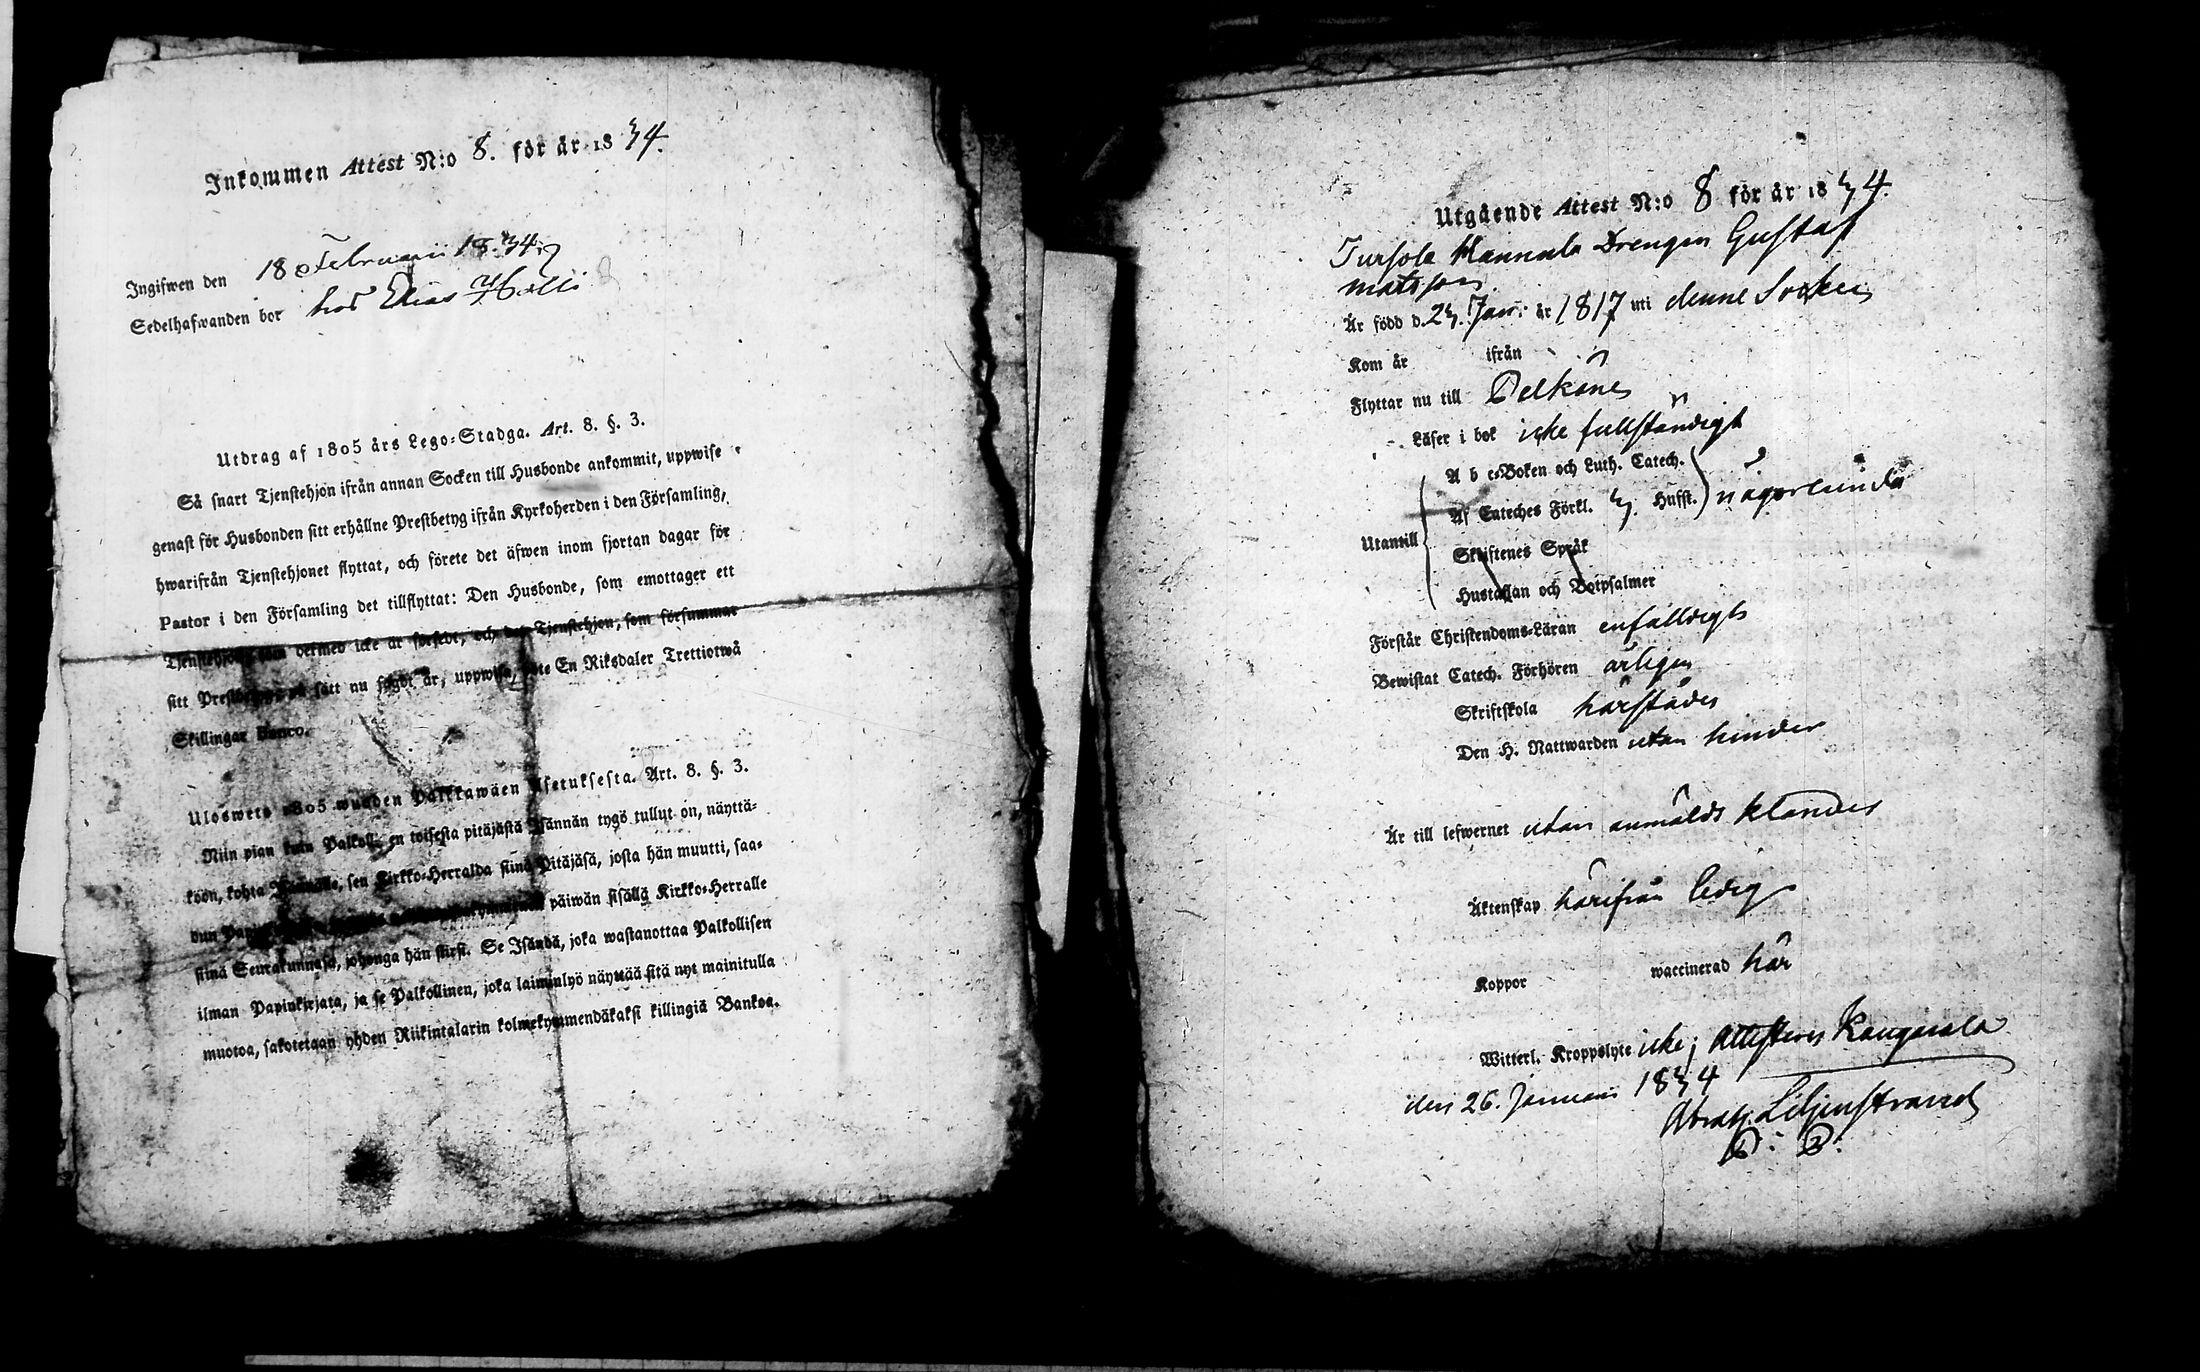 Inkommen Attest N:o 8. för år 1834.
Ingifwen den 18 Februarii 1834
Sedelhafwanden bor hos Elias
Utdrag af 1805 års Lego-Stadga. Art. 8. §. 3.
Så snart Tjenstehjon ifrån annan Socken till Husbonde ankommit, uppwise
genast för Husbonden sitt erhållne Prestbetyg ifrån Kyrkoherden i den Församling,
hwarifrån Tjenstehjonet flyttat, och förete det äfwen inom fjortan dagar för
Pastor i den Församling det tillflyttat: Den Husbonde, som emottager ett
Tjenstehjon, som dermed icke är försedt, och det Tjenstehjon, som försummar
sitt Prestbetyg, på sätt nu sagdt är, uppwisa, böte En Riksdaler Trettiotwå
Skillingar Banco.
Ulosweto 1805 wuoden Palkkawäen Asetuksesta. Art. 8. §. 3.
Niin pian kuin Palkollinen toisesta pitäjästä Isännän tygö tullut on, näyttä-
köön, kohta Isännälle, sen Kirkko-Herralda siinä Pitäjäsä, josta hän muutti, saa-
dun päiwän sisällä Kirkko-Herralle
siinä Seurakunnasa, johonga hän siirsi. Se Isändä, joka wastanottaa Palkollisen
ilman Papinkirjata, ja se Palkollinen, joka laiminlyö näyttää sitä nyt mainitulla
muotoa, sakotetaan yhden Riikintalarin kolmekymmendäkaksi killingiä Bankoa.
Utgående Attest N:o 8 för år 1834.
Tursola Hannula Drengen Gustaf
Matsson
Är född d. 23. Jan. år 1817 uti denne Socken
Kom år ifrån
Flyttar nu till Pelkäne
Läser i bok icke fullständigt
A b c-Boken och Luth. Catech.
Utantill Af Cateches Förkl. 3. Hufst. någorlunda
Skriftenes Språk
Hustaflan och Botpsalmer
Förstår Christendoms-Läran enfalldigt
Bewistat Catech. Förhören årligen
Skriftskola härstädes
Den H. Nattwarden utan hinder
Är till lefwernet utan anmäldt klander
Äktenskap härifrån ledig
Koppor waccinerad här
Witterl. Kroppslyte icke; Attesteres Kangasala
den 26. Januari 1834
Abrah. Liljenstrand
P. P.